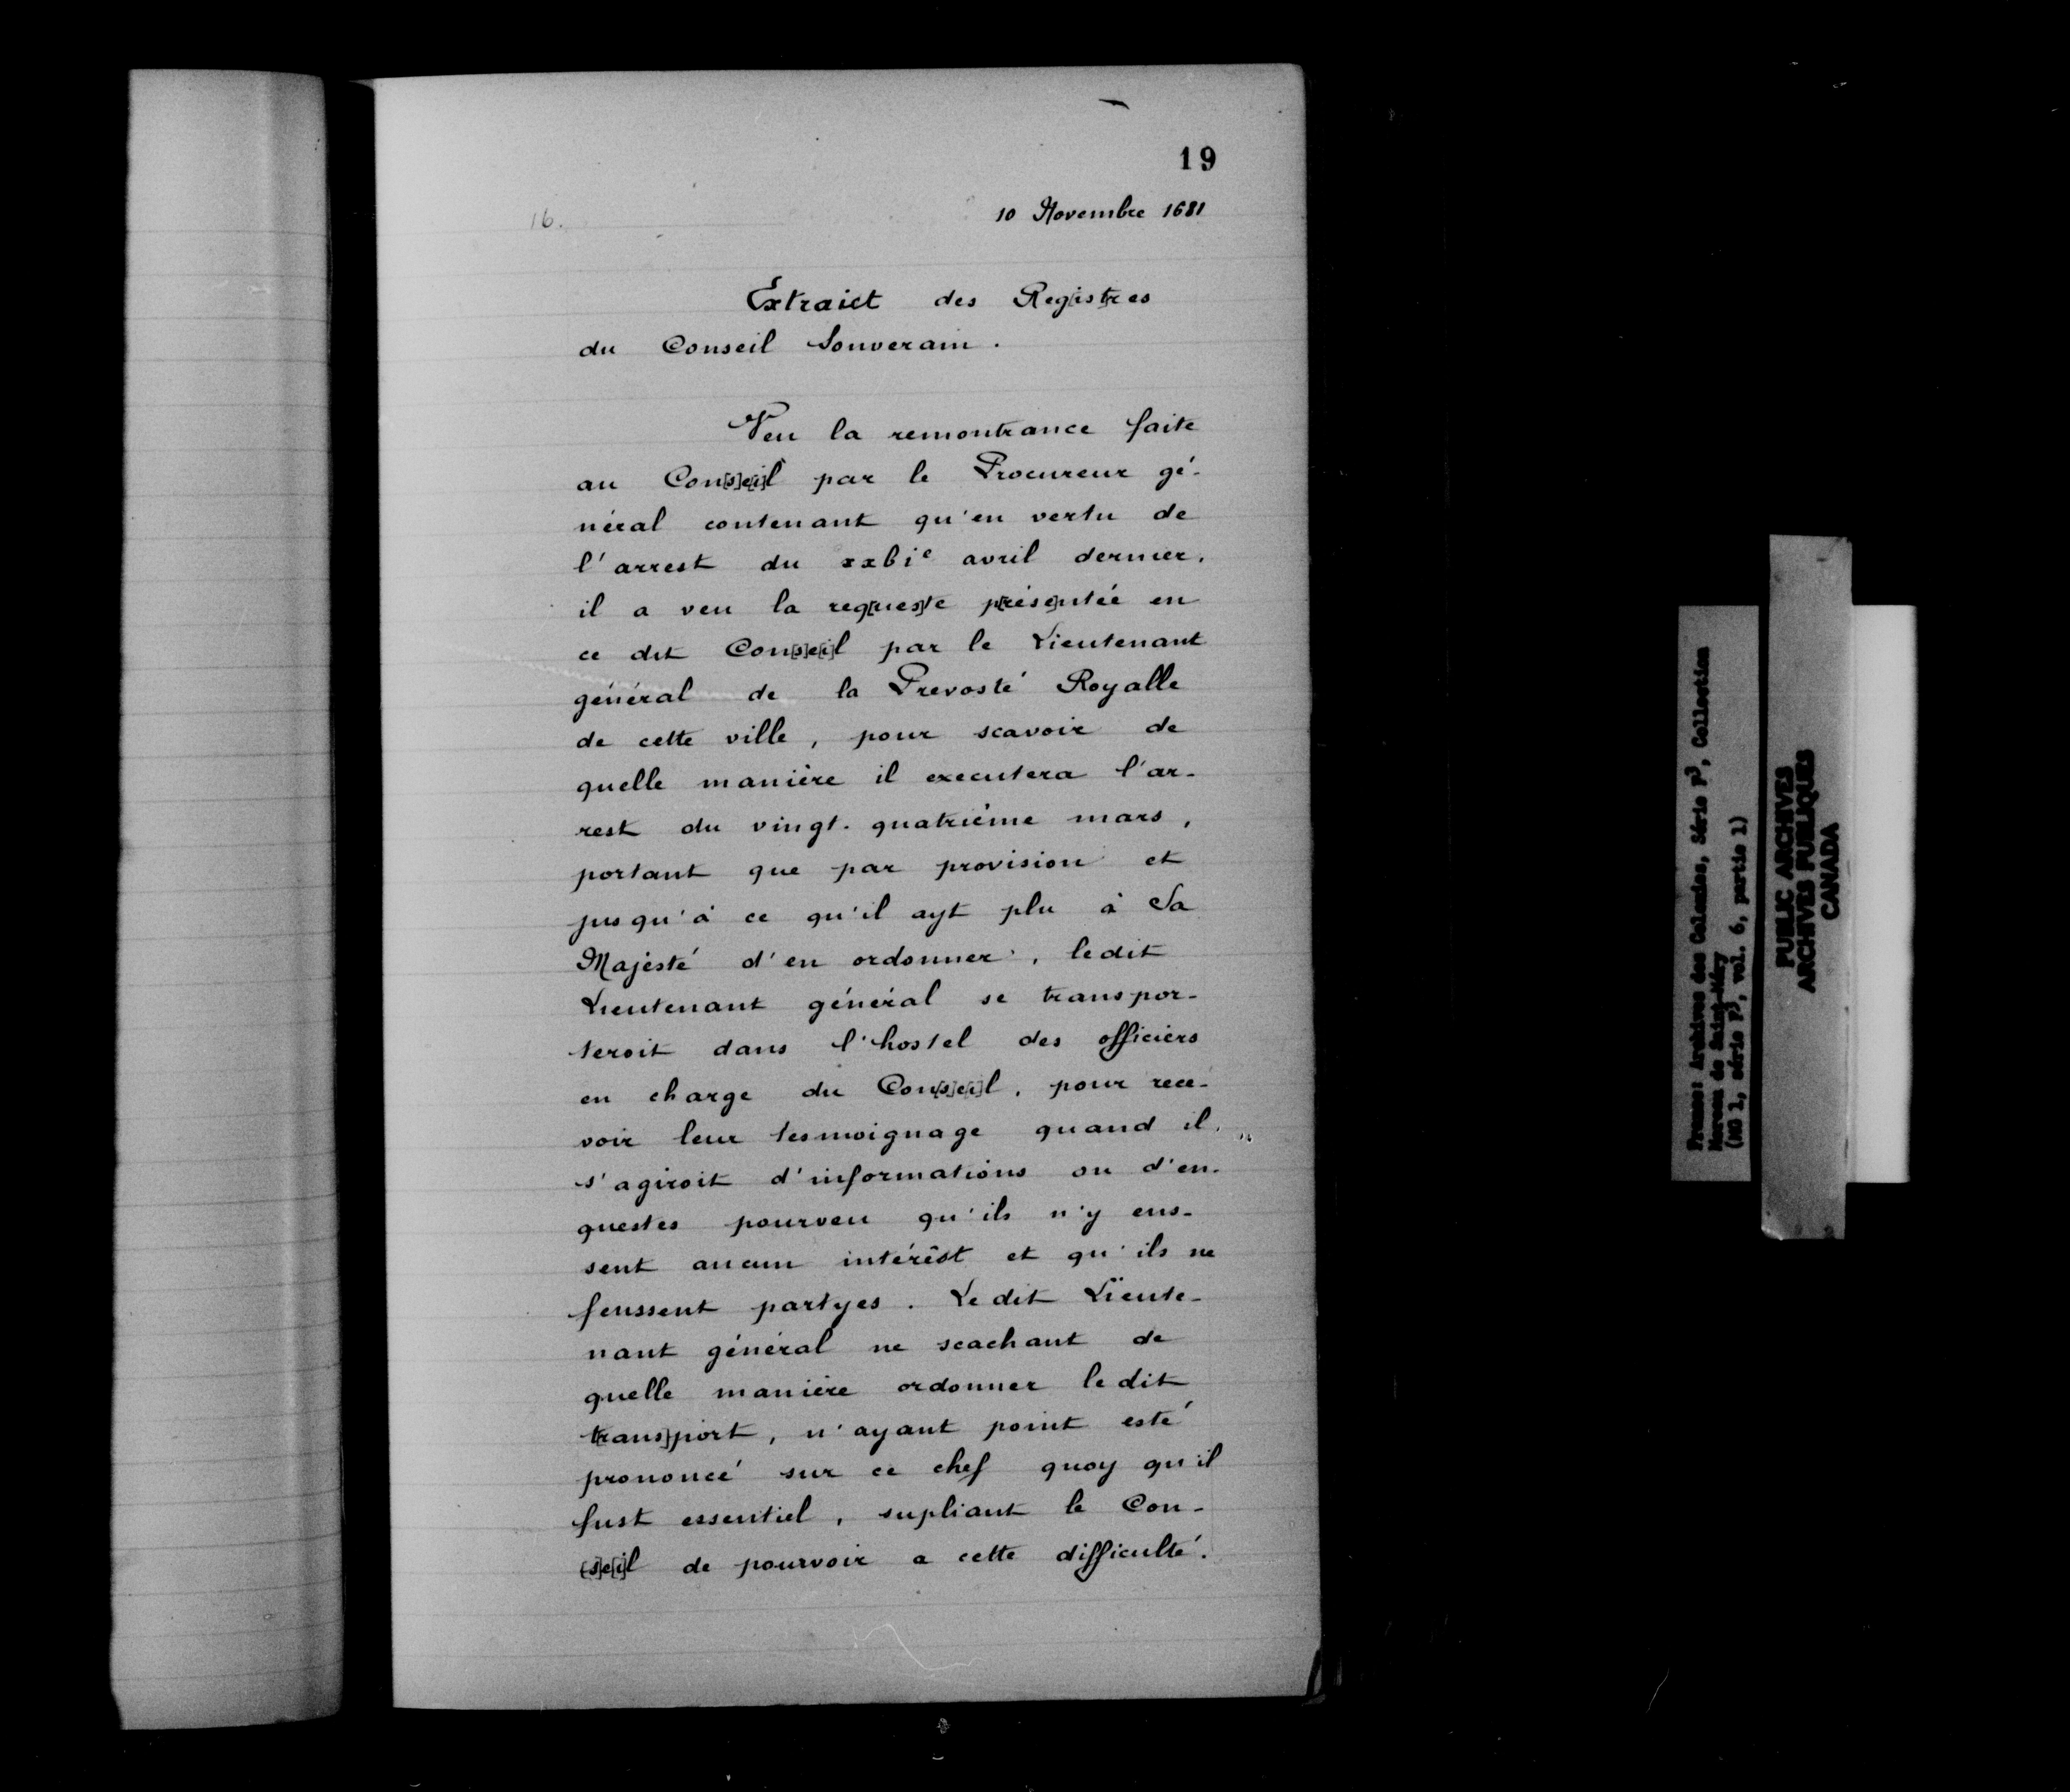 19
16.
10 Novembre 1681
Extraict des Reg[ist]res
du Conseil Souverain.
Veu la remontrance faite
au Con[s]e[i]l par le Procureur gé-
néral contenant qu'en vertu de
l'arrest du xxbie avril dernier,
il a veu la req[ues]te p[rés]e[n]tée en
ce dit Con[s]e[i]l par le Lieutenant
général de la Prevosté Royalle
de cette ville, pour scavoir de
quelle manière il executera l'ar-
rest du vingt-quatrième mars,
portant que par provision et
jusqu'à ce qu'il ayt plu à Sa
Majesté d'en ordonner, ledit
Lieutenant général se transpor-
teroit dans l'hostel des officiers
en charge du Con[s]e[i]l, pour rece-
voir leur tesmoignage quand il
s'agiroit d'informations ou d'en-
questes pourveu qu'ils n'y eus-
sent aucun intérêst et qu'ils ne
feussent partyes. Le dit Lieute-
nant général ne scachant de
quelle manière ordonner le dit
t[rans]port, n'ayant point esté
prononcé sur ce chef quoy qu'il
fust essentiel, supliant le Con-
[s]e[i]l de pourvoir a cette difficulté.
France: Archives des Colonies, Série F3, Collection
Moreau de Saint-Méry
(MG 1, série F3, vol. 6, partie 1)
PUBLIC ARCHIVES
ARCHIVES PUBLIQUES
CANADA